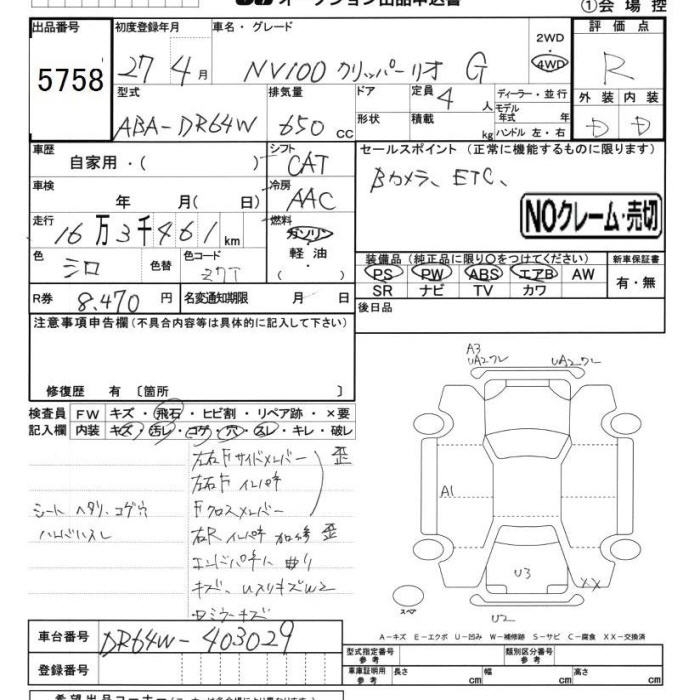 オークション出品申込書
①会場控
出品番号 初度登録年月 車名・グレード 2WD 4WD 評価点
5758 27 4月 NV100 クリッパーリオ G R
型式 排気量 ドア 定員 4 人 ディーラー・並行 外装 内装
ABA-DR64W 650 cc 形状 積載 kg モデル年式 年 ハンドル 左・右 D D
車歴 自家用・( ) シフト CAT セールスポイント (正常に機能するものに限ります)
車検 年 月( 日) 冷房 AAC Bカメラ、ETC、
NOクレーム・売切
走行 16万3千461km 燃料 ガソリン 軽油 ・( )
色 シロ 色替 色コード 27T
装備品 (純正品に限り○をつけてください) 新車保証書
PS PW ABS エアB AW 有・無
SR ナビ TV カワ
R券 8,470 円 名変通知期限 月 日
後日品
注意事項申告欄 (不具合内容等は具体的に記入して下さい)
修復歴 有 〔箇所 〕
検査員 FW キズ・飛石・ヒビ割・リペア跡・×要
記入欄 内装 キズ・汚レ・コゲ・穴・スレ・キレ・破レ
左右Fサイドメンバー 歪
左右Fインパネ
シート ヘタリ、コゲ穴 Fクロスメンバー
右Rインパネ 加修 歪
エンドパネルに曲り
A3
UA2ワレ UA2ワレ
A1
U3
XX
スペア
U2
A-キズ E-エクボ U-凹み W-補修跡 S-サビ C-腐食 XX-交換済
車台番号 DR64W-403029
登録番号
型式指定番号 参考 類別区分番号 参考
車庫証明用 参考 長さ cm 幅 cm 高さ cm